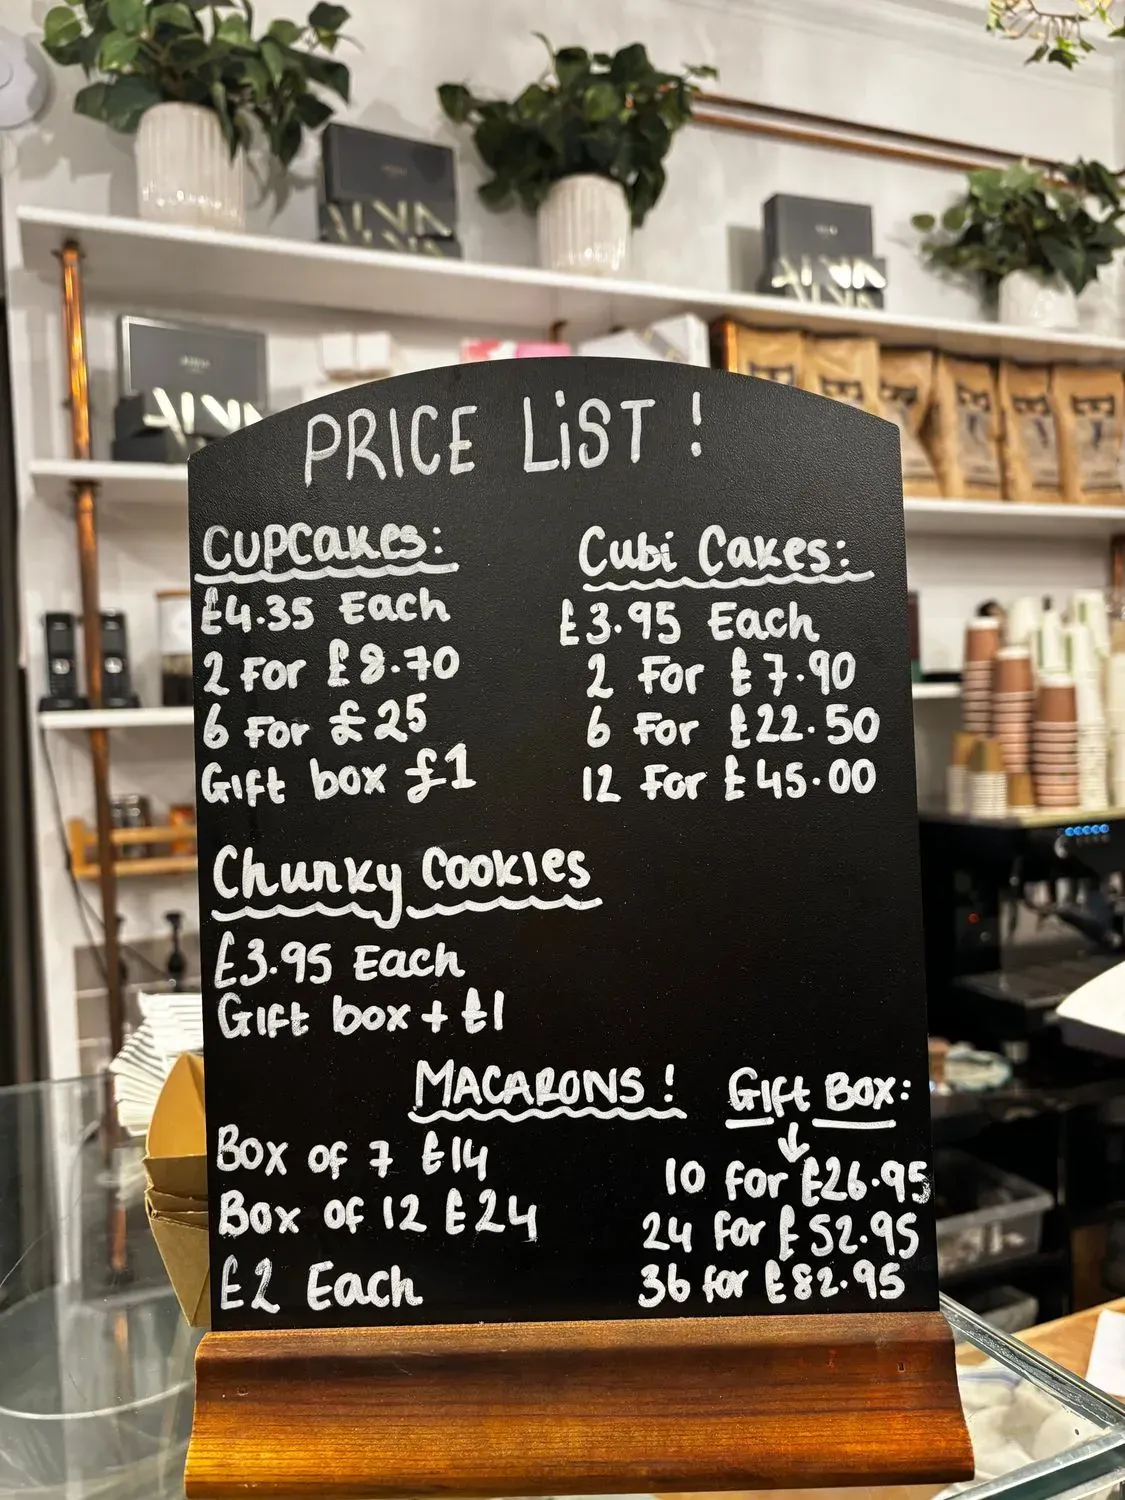 PRICE LiST !
CUPCakes:
£4.35 Each
2 For £8.70
6 For £25
Gift box £1
Cubi Cakes:
£3.95 Each
2 For £7.90
6 For £22.50
12 For £45.00
Chunky Cookies
£3.95 Each
Gift box + £1
MACARONS !
Box of 7 £14
Box of 12 £24
£2 Each
Gift Box:
↓
10 for £26.95
24 for £52.95
36 for £82.95